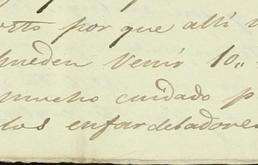 por que allí
pueden venir 10,,
mucho cuidado p
los enfardeladores